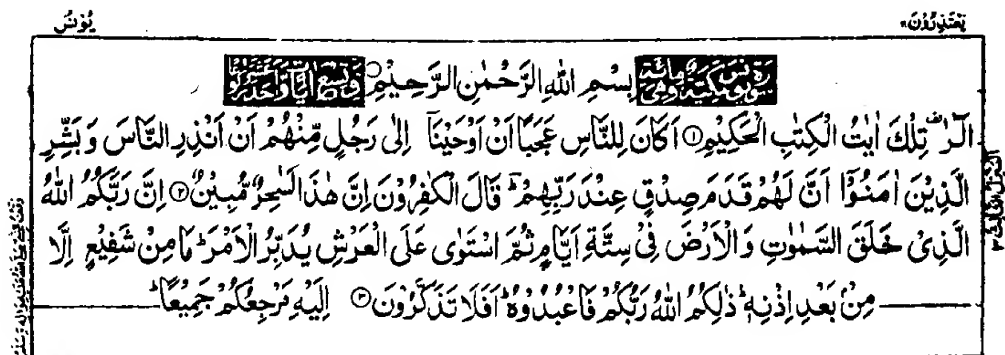 یعتذرون ۱۱ یونس
سورة یونس مکیة وهی مائة بِسْمِ اللهِ الرَّحْمٰنِ الرَّحِیْمِ وتسع اٰیات
الٓرٰ ۫ تِلْكَ اٰیٰتُ الْكِتٰبِ الْحَكِیْمِ ۝۱ اَكَانَ لِلنَّاسِ عَجَبًا اَنْ اَوْحَیْنَاۤ اِلٰی رَجُلٍ مِّنْهُمْ اَنْ اَنْذِرِ النَّاسَ وَ بَشِّرِ
الَّذِیْنَ اٰمَنُوْۤا اَنَّ لَهُمْ قَدَمَ صِدْقٍ عِنْدَ رَبِّهِمْ ؕ قَالَ الْكٰفِرُوْنَ اِنَّ هٰذَا لَسٰحِرٌ مُّبِیْنٌ ۝۲ اِنَّ رَبَّكُمُ اللّٰهُ
الَّذِیْ خَلَقَ السَّمٰوٰتِ وَ الْاَرْضَ فِیْ سِتَّةِ اَیَّامٍ ثُمَّ اسْتَوٰی عَلَی الْعَرْشِ یُدَبِّرُ الْاَمْرَ ؕ مَا مِنْ شَفِیْعٍ اِلَّا
مِنْۢ بَعْدِ اِذْنِهٖ ؕ ذٰلِكُمُ اللّٰهُ رَبُّكُمْ فَاعْبُدُوْهُ ؕ اَفَلَا تَذَكَّرُوْنَ ۝۳ اِلَیْهِ مَرْجِعُكُمْ جَمِیْعًا ؕ